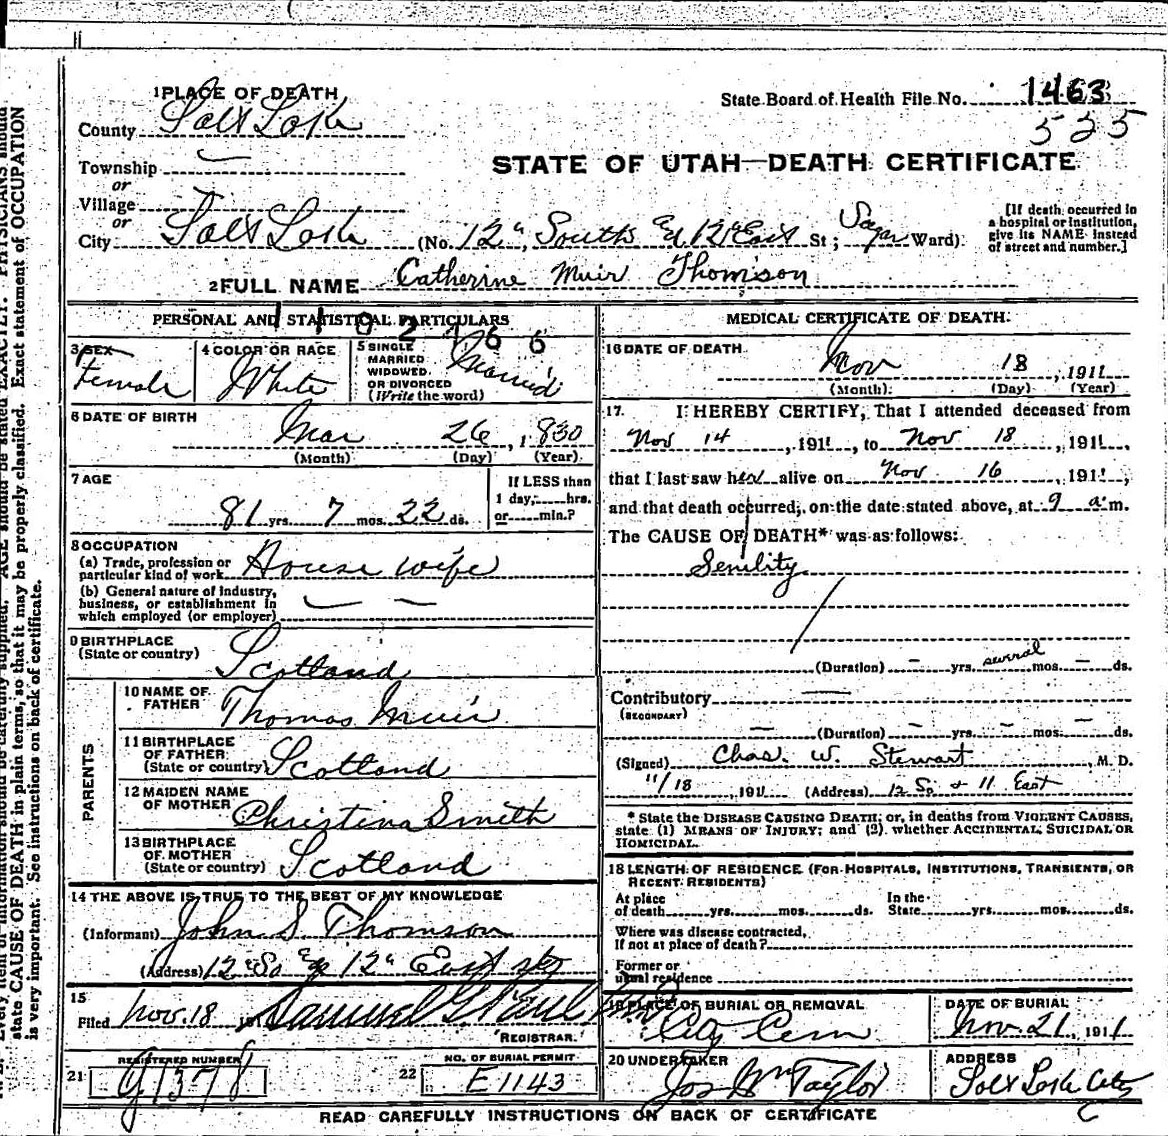 1 PLACE OF DEATH
State Board of Health File No. 1463
County Salt Lake
535
Township
STATE OF UTAH—DEATH CERTIFICATE
or
Village
or
City Salt Lake (No. 12th South Ed 12th East St; Sugar Ward)
[If death occurred in a hospital or institution, give its NAME instead of street and number.]
2 FULL NAME Catherine Muir Thomson
PERSONAL AND STATISTICAL PARTICULARS
3 SEX Female
4 COLOR OR RACE White
5 SINGLE MARRIED WIDOWED OR DIVORCED (Write the word) Married
6 DATE OF BIRTH
Mar 26, 1830
(Month) (Day) (Year)
7 AGE
If LESS than
1 day, hrs.
or min.?
81 yrs. 7 mos. 22 ds.
8 OCCUPATION
(a) Trade, profession or
particular kind of work House wife
(b) General nature of industry,
business, or establishment in
which employed (or employer)
9 BIRTHPLACE
(State or country) Scotland
PARENTS
10 NAME OF FATHER Thomas Muir
11 BIRTHPLACE OF FATHER (State or country) Scotland
12 MAIDEN NAME OF MOTHER Christina Smith
13 BIRTHPLACE OF MOTHER (State or country) Scotland
14 THE ABOVE IS TRUE TO THE BEST OF MY KNOWLEDGE
(Informant) John S. Thomson
(Address) 12th So 12th East
15
Filed Nov. 18, 191 Samuel G. Paul
REGISTRAR.
21 REGISTERED NUMBER G1378
22 NO. OF BURIAL PERMIT E1143
MEDICAL CERTIFICATE OF DEATH
16 DATE OF DEATH
Nov 18, 1911
(Month) (Day) (Year)
17. I HEREBY CERTIFY, That I attended deceased from
Nov 14, 1911, to Nov 18, 1911,
that I last saw her alive on Nov. 16, 1911,
and that death occurred, on the date stated above, at 9 a m.
The CAUSE OF DEATH* was as follows:
Senility
(Duration) — yrs. several mos. — ds.
Contributory —
(SECONDARY)
(Duration) — yrs. — mos. — ds.
(Signed) Chas. W. Stewart, M. D.
11/18, 1911 (Address) 12 So & 11 East
* State the DISEASE CAUSING DEATH; or, in deaths from VIOLENT CAUSES,
state (1) MEANS OF INJURY; and (2) whether ACCIDENTAL, SUICIDAL OR
HOMICIDAL.
18 LENGTH OF RESIDENCE (FOR HOSPITALS, INSTITUTIONS, TRANSIENTS, OR
RECENT RESIDENTS)
At place of death yrs. mos. ds. In the State yrs. mos. ds.
Where was disease contracted,
If not at place of death?
Former or
usual residence
19 PLACE OF BURIAL OR REMOVAL
City Cem
DATE OF BURIAL
Nov. 21, 1911
20 UNDERTAKER
Jos Wm Taylor
ADDRESS
Salt Lake City
READ CAREFULLY INSTRUCTIONS ON BACK OF CERTIFICATE
state CAUSE OF DEATH in plain terms, so that it may be properly classified. Exact statement of OCCUPATION
is very important. See instructions on back of certificate.